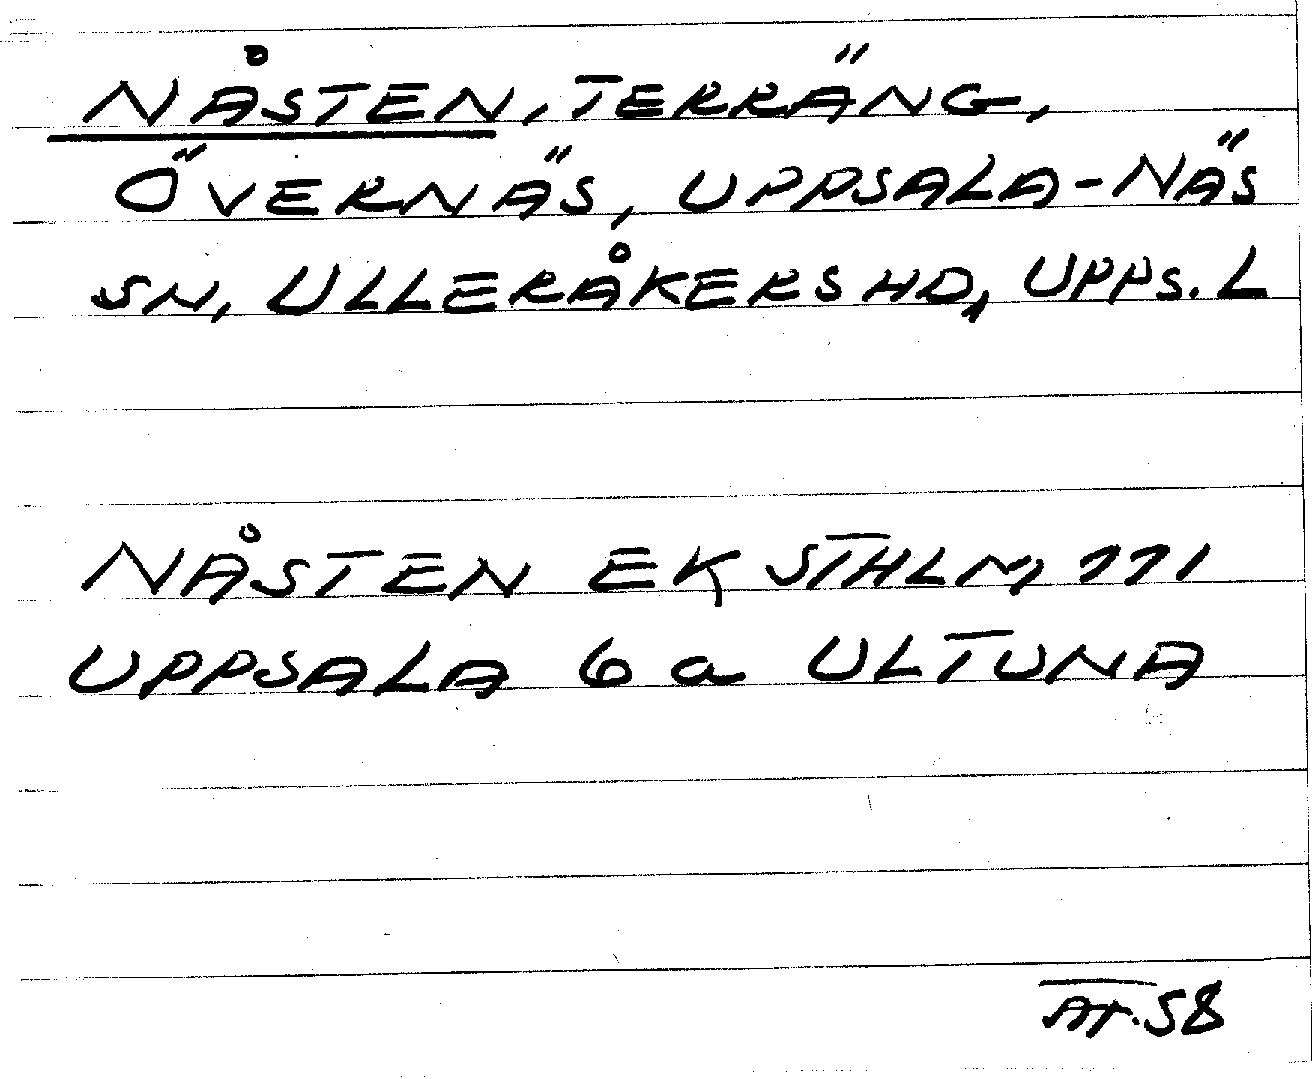 NÅSTEN, TERRÄNG,
ÖVERNÄS, UPPSALA-NÄS
SN, ULLERÅKERS HD, UPPS. L
NÅSTEN EK STHLM, 111
UPPSALA 6 a ULTUNA
AT. 58